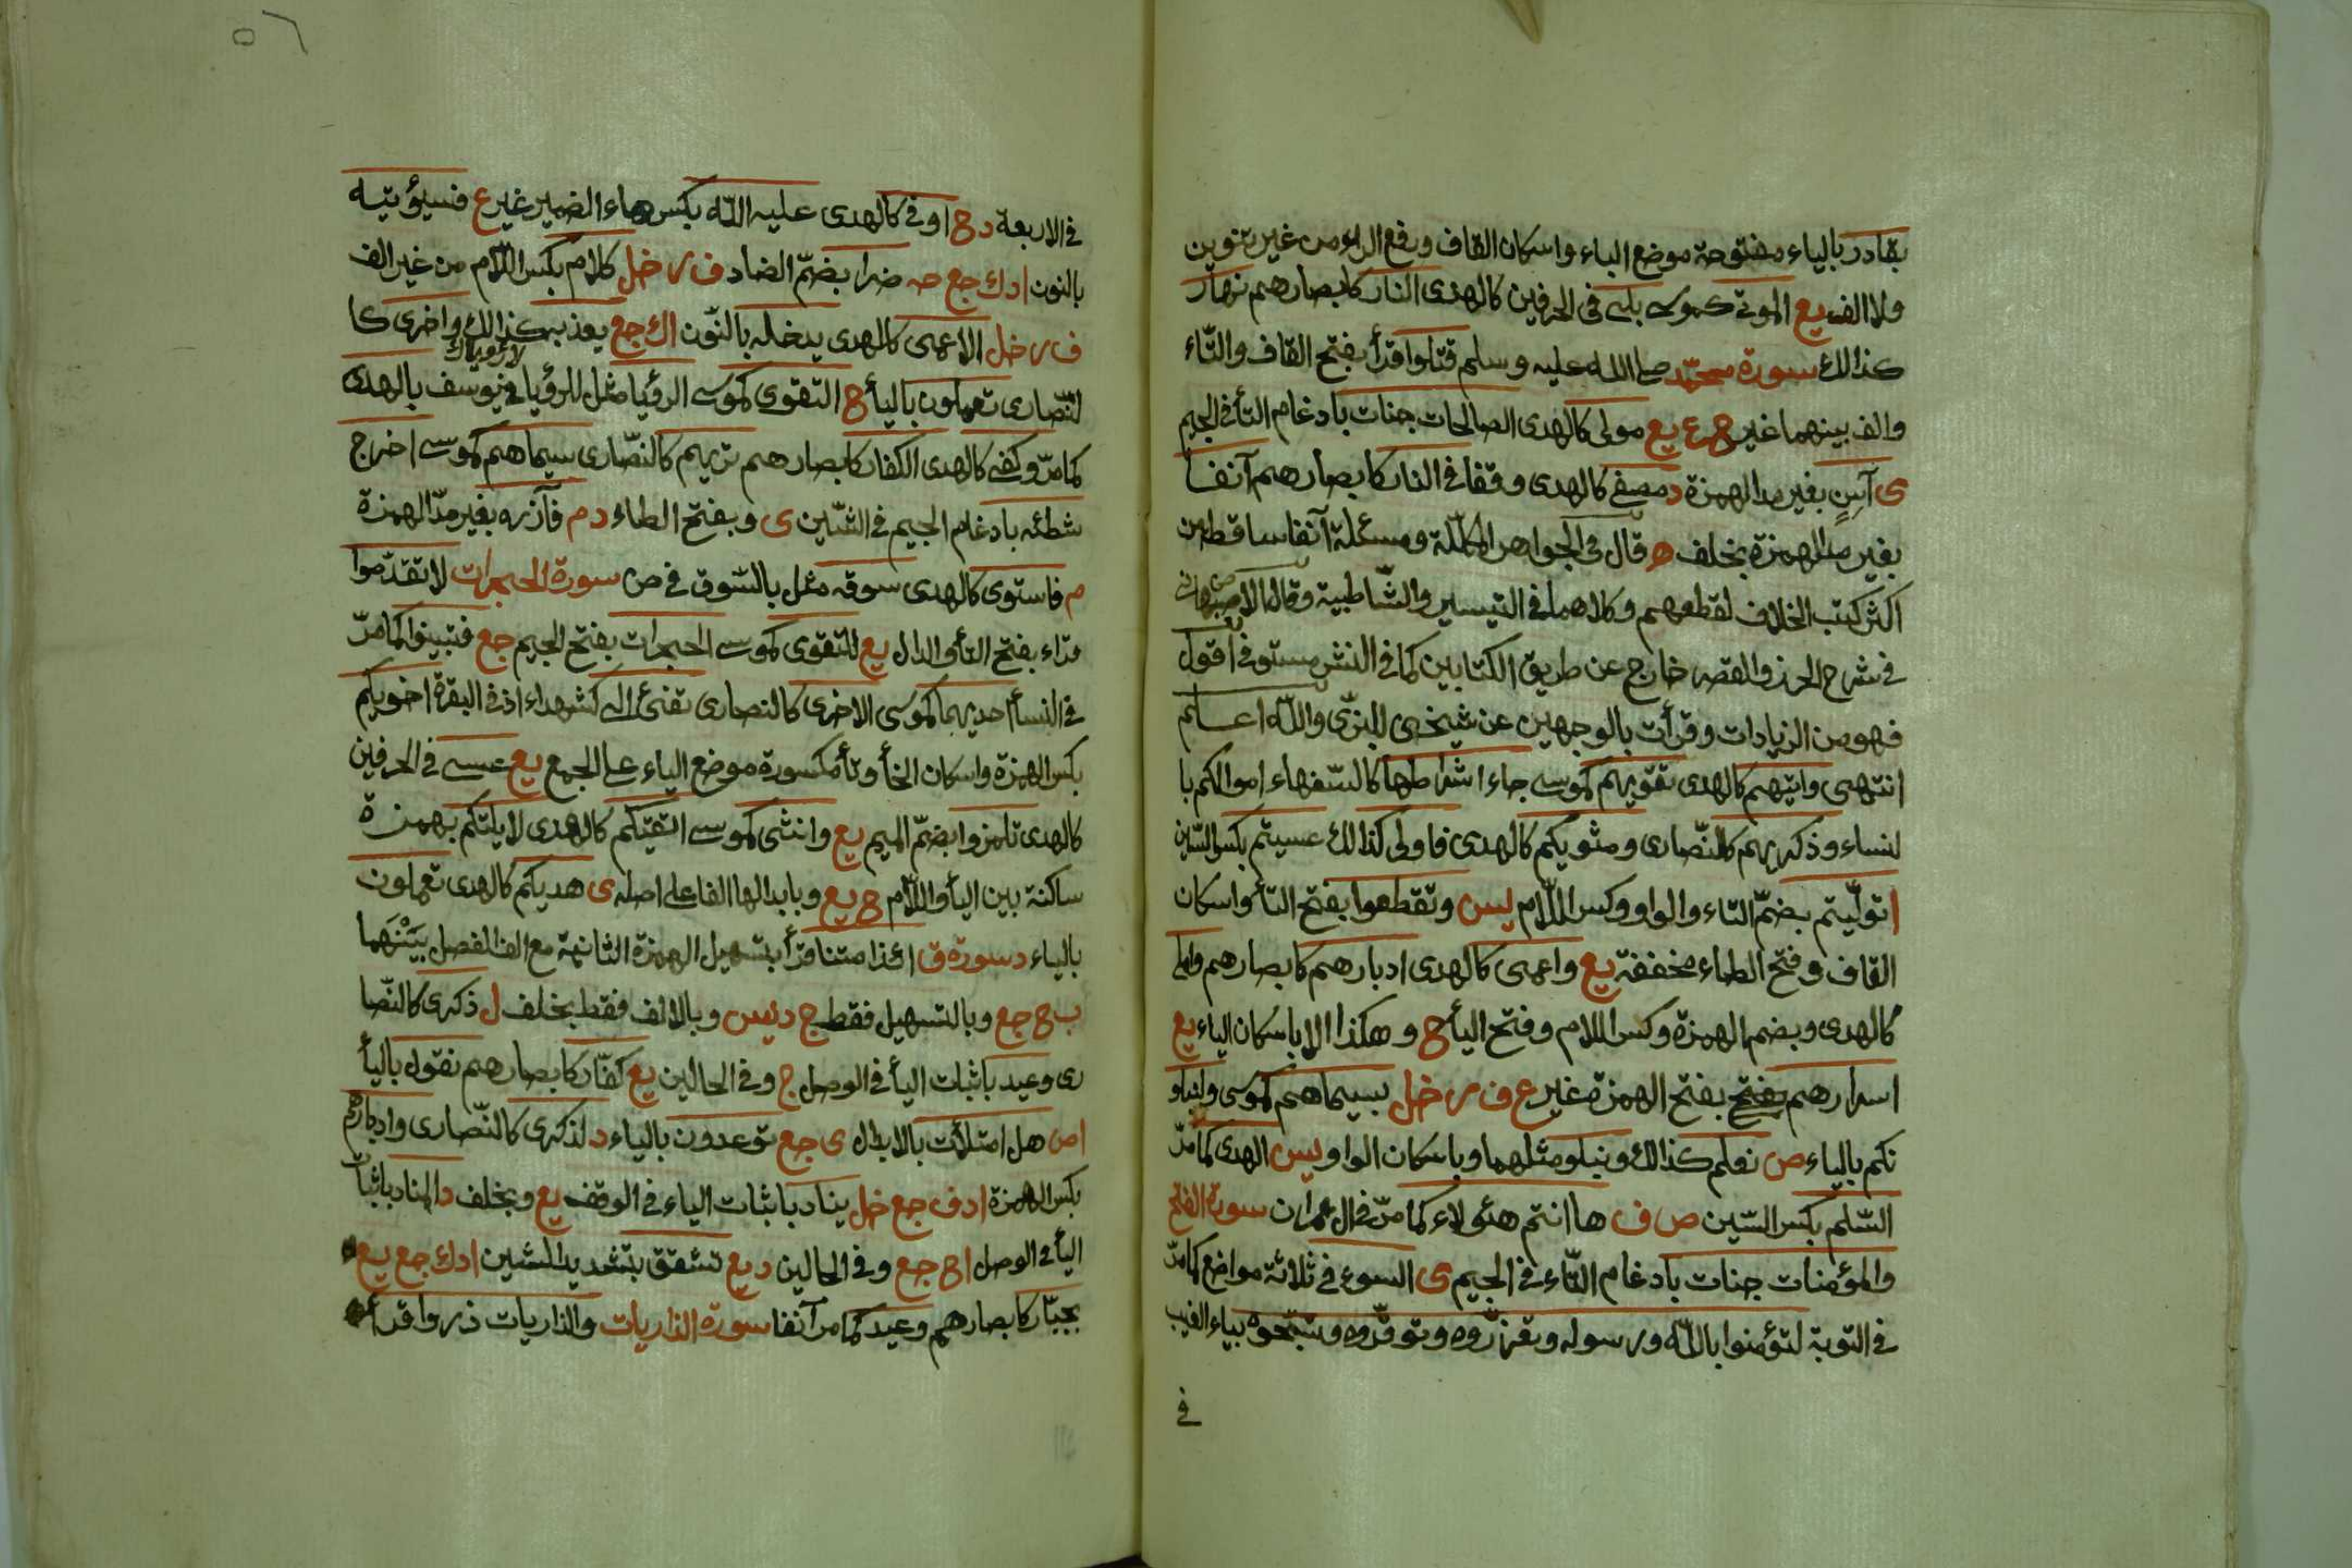 بقادر بالياء مفتوحة موضع الباء واسكان القاف ورفع الراء من غير تنوين
ولا الف يع الموتى كموسى بلى في الحرفين كالهدى النار كابصارهم نهار
كذالك سورة محمّد صلى الله عليه وسلم قتلوا قرأ بفتح القاف والتّاء
والف بينهما غير ح ع يع مولى كالهدى الصالحات جنات بادغام التأ في الجيم
ى آسن بغير مد الهمزة د مصفى كالهدى وقفا في النار كابصارهم آنفا
بغير مد الهمزة بخلف ه قال في الجواهر المكلّلة ومسئلة آنفا ساقط من
اكثر كتب الخلاف لقطعهم وكلاهما في التيسير والشّاطبية وقال الاصبهانى
في شرح الحرز والقصر خارج عن طريق الكتابين كما في النشر مستوفى اقول
فهو من الزيادات وقرأت بالوجهين عن شيخى للبزّى واللّه اعلم
انتهى واتيهم كالهدى تقويهم كموسى جاء اشراطها كالسّفهاء اموالكم با
لنساء وذكريهم كالنّصارى ومثويكم كالهدى فاولى كذالك عسيتم بكسر السّين
ا تولّيتم بضمّ التاء والواو وكسر اللّام يس وتقطعوا بفتح التأ واسكان
القاف وفتح الطاء مخففة يع واعمى كالهدى ادبارهم كابصارهم واملى
كالهدى وبضم الهمزة وكسر اللام وفتح اليأ ح وهكذا الا باسكان الياء يع
اسرارهم بفتح بفتح الهمزة غير ع ف ر خل بسيماهم كموسى ولنبلو
نكم بالياء ص نعلم كذالك ونبلو مثلهما وباسكان الواو يس الهدى كما مرّ
السّلم بكسر السّين ص ف ها انتم هئولاء كما مرّ في ال عمران سورة الفتح
والمؤمنات جنات بادغام التّاء في الجيم ى السوء في ثلاثة مواضع كما مرّ
في التوبة لتؤمنوا باللّه ورسوله وتعزّروه وتوقّروه وتسبّحوه بياء الغيب
في
٥٦
في الاربعة د ح اوفى كالهدى عليه اللّه بكسر هاء الضمير غير ع فسيؤتيه
بالنون ا د ك جع حه ضرا بضمّ الضاد ف ر خل كلام بكسر اللّام من غير الف
ف ر خل الاعمى كالهدى يدخله بالنّون ا ك جع يعذبه كذالك واخرى كا
لنّصارى تعملون باليأ ح التقوى كموسى الرؤيا مثل للرؤيا في يوسف بالهدى
كما مرّ وكفى كالهدى الكفار كابصارهم تريهم كالنّصارى سيماهم كموسى اخرج
شطئه بادغام الجيم في الشّين ى وبفتح الطاء د م فآزره بغير مدّ الهمزة
م فاستوى كالهدى سوقه مثل بالسّوق في ص سورة الحجرات لا تقدّموا
قراء بفتح التأ والدال يع للتقوى كموسى الحجرات بفتح الجيم جع فتبينوا كما مرّ
في النسأ احديهما كموسى الاخرى كالنصارى تفئ الى كشهداء اذ في البقرة اخويكم
بكسر الهمزة واسكان الخأ وتأ مكسورة موضع الياء على الجمع يع عسى في الحرفين
كالهدى تلمزوا بضمّ الميم يع وانثى كموسى اتقيكم كالهدى لا يلتكم بهمزة
ساكنة بين اليأ واللّام ح يع وبابدالها الفا على اصله ى هديكم كالهدى تعملون
بالياء د سورة ق ائذا متنا قرأ بتسهيل الهمزة الثانية مع الف الفصل بينهما
ب ح جع وبالتسهيل فقط ج د يس وبالالف فقط بخلف ل ذكرى كالنّصا
رى وعيد باثبات اليأ في الوصل ج وفي الحالين يع كفّار كابصارهم نقول باليأ
ا ص هل امتلأت بالابدال ى جع توعدون بالياء د لذكرى كالنّصارى وادبارهم
بكسر الهمزة ا د ف جع خل يناد باثبات الياء في الوقف يع وبخلف د المناد باثبات
اليأ في الوصل ا ح جع وفي الحالين د يع تشقق بتشديد الشين ا د ك جع يع
بجبّار كابصارهم وعيد كما مر آنفا سورة الذاريات والذاريات ذروا قرأ